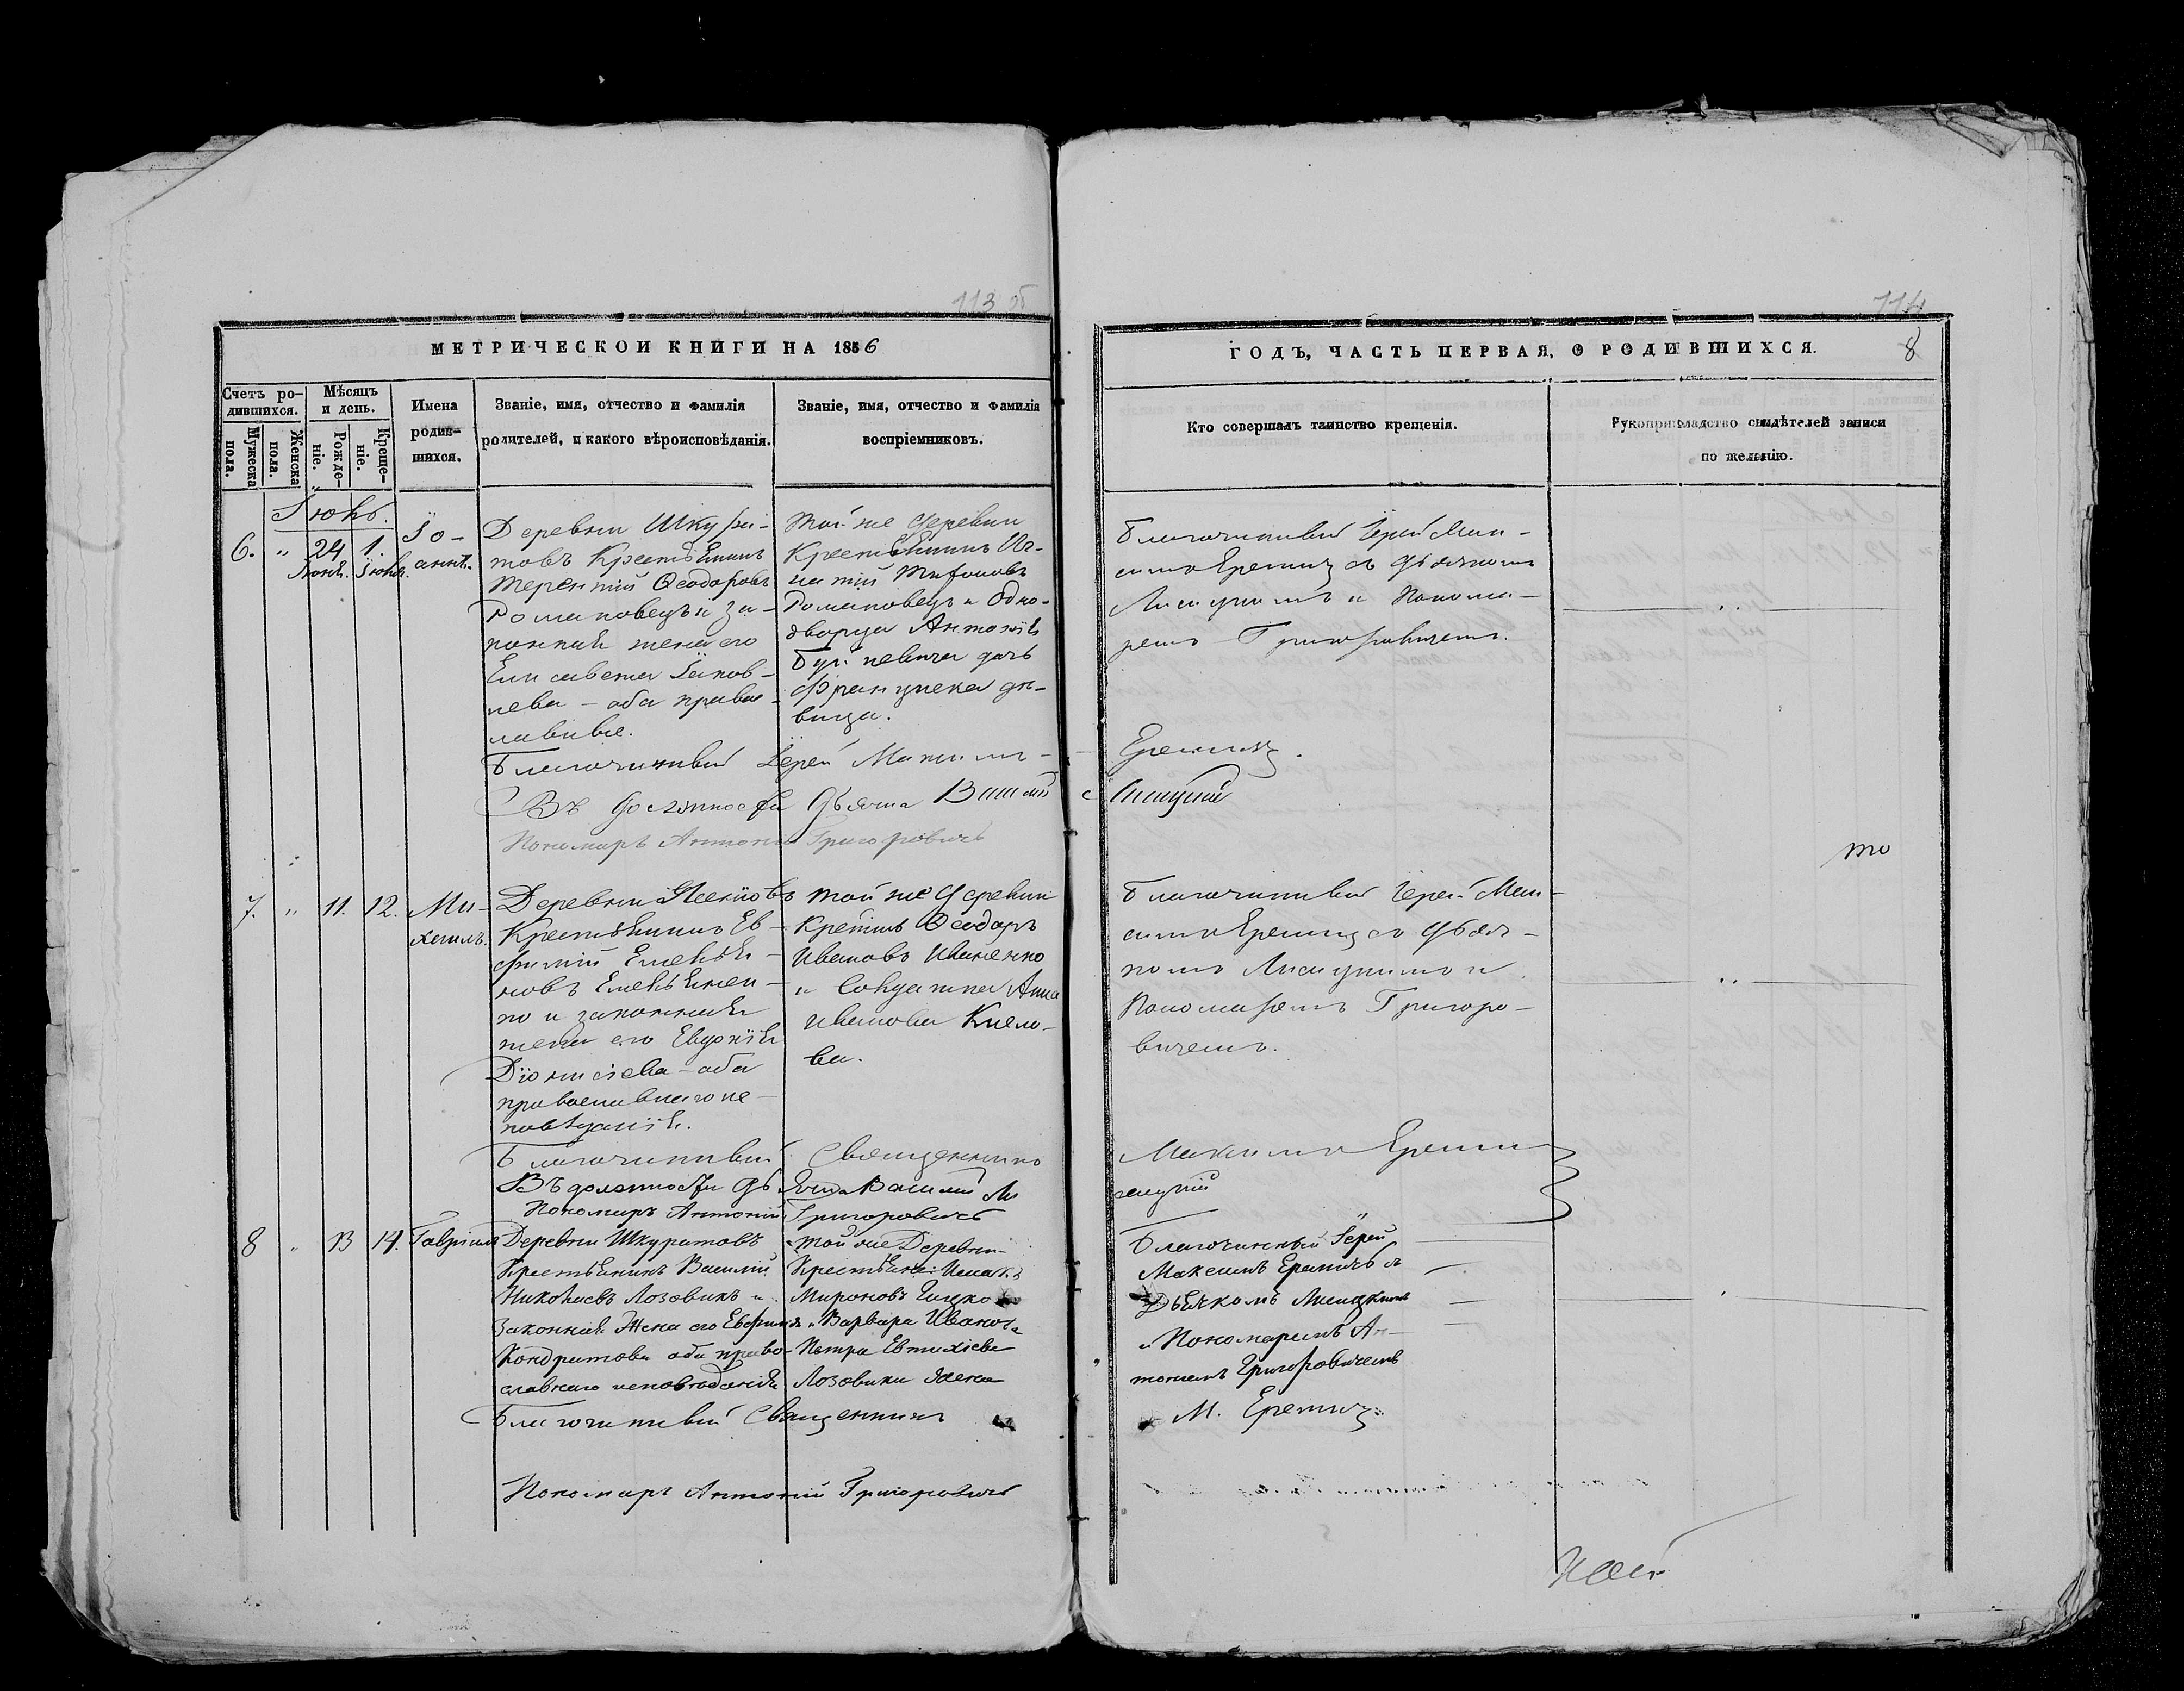 113 об
МЕТРИЧЕСКОЙ КНИГИ НА 1856
Счетъ ро-
дившихся.
Мужеска
пола.
Женска
пола.
Мѣсяцъ
и день.
Рожде-
ніе.
Креще-
ніе.
Имена
родив-
шихся.
Званіе, имя, отчество и фамилія
родителей, и какого вѣроисповѣданія.
Званіе, имя, отчество и фамилія
воспріемниковъ.
Іюль.
6.
"
24
Іюня.
1.
Іюля.
Іо-
аннъ.
Деревни Шкура-
товъ Крестьянинъ
Терентій Ѳеодоровъ
Романовецъ и за-
конная жена его
Елисавета Іаков-
лева - оба правос-
лавные.
Той же деревни
Крестьянинъ Иг-
натій
Романовецъ и одно-
дворца Антонія
дочь
Франциска дѣ-
вица.
Благочинный Іерей Максимъ
Въ должности Дьячка Василій
Пономарь Антоній Григоровичъ
7.
"
11.
12.
Ми-
хаилъ.
Деревни
Крестьянинъ Ев-
фимій Емелья-
новъ Емельянен-
ко и законная
жена его Евдокія
Діонисіева - оба
православнаго ис-
повѣданія.
той же деревни
Ѳеодоръ
Ивановъ Иваненко
и Солдатка Анна
Иванова Кисло-
ва.
Благочинный Священникъ
Въ должности Дьячка Василій Ли
Пономарь Антоній Григоровичъ
8
"
13
14.
Гавріилъ
Деревни Шкуратовъ
Крестьянинъ Василій
Николаевъ Лозовикъ и
Законная Жена его Евфимія
Кондратова оба право-
славнаго исповѣданія
той же Деревни
Мироновъ
и Варвара Иванова
Петра Евтихіева
Лозовика жена
Благочинный Священникъ
Пономарь Антоній Григоровичъ
114
ГОДЪ, ЧАСТЬ ПЕРВАЯ, О РОДИВШИХСЯ.
8
Кто совершалъ таинство крещенія.
Рукоприкладство свидѣтелей записи
по желанію.
Благочинный Іерей Мак-
симъ Еремичъ съ Дьячкомъ
Лисицкимъ и Понома-
ремъ Григоровичемъ.
Еремичъ.
сицкій
то
Благочинный Іерей Мак-
симъ Еремичъ съ Дьяч-
комъ Лисицкимъ и
Пономаремъ Григоро-
вичемъ.
Максимъ Еремич
сицкій
Благочинный Іерей
Максимъ Еремичъ съ
Дьячкомъ Лисицкимъ
и Пономаремъ Ан-
тоніемъ Григоровичемъ
М. Еремичъ